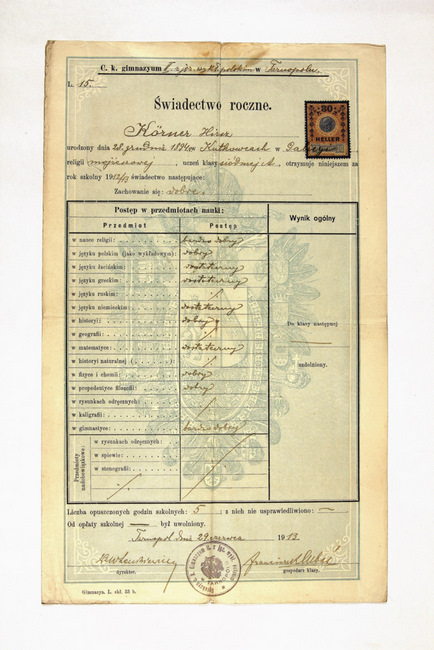 C. k. gimnazyum I. z jęz. wykł. polskim w Tarnopolu.
L. 15.
Świadectwo roczne.
Körner Hirsz
urodzony dnia 28. grudnia 1894 w Kutkowcach w Galicyi
religii mojżeszowej, uczeń klasy siódmej A, otrzymuje niniejszem za
rok szkolny 1912/13 świadectwo następujące:
Zachowanie się: dobre.
30
HELLER
Postęp w przedmiotach nauki:
Wynik ogólny
Przedmiot
Postęp
w nauce religii: bardzo dobry
w języku polskim (jako wykładowym): dobry
w języku łacińskim: dostateczny
w języku greckim: dostateczny
w języku ruskim:
w języku niemieckim: dostateczny
w historyi: dobry
w geografii:
w matematyce: dostateczny
w historyi naturalnej
w fizyce i chemii: dobry
w propedeutyce filozofii: dobry
w rysunkach odręcznych:
w kaligrafii:
w gimnastyce: bardzo dobry
Do klasy następnej
uzdolniony.
Przedmioty nadobowiązkowe:
w rysunkach odręcznych:
w śpiewie:
w stenografii:
Liczba opuszczonych godzin szkolnych: 5 ; z nich nie usprawiedliwiono: —
Od opłaty szkolnej — był uwolniony.
Tarnopol, dnia 29 czerwca 1913
dyrektor.
gospodarz klasy.
Gimnazya. L. skł. 33 b.